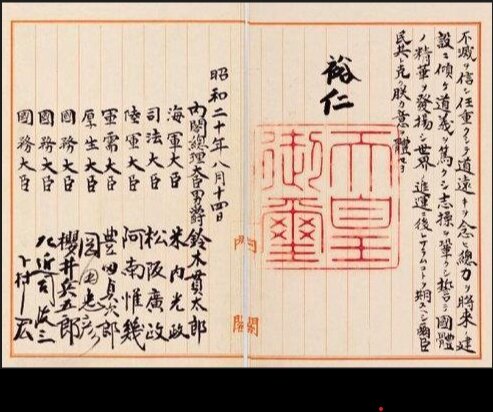 不滅ヲ信シ任重クシテ道遠キヲ念ヒ總力ヲ將來ノ建
設ニ傾ケ道義ヲ篤クシ志操ヲ鞏クシ誓テ國體
ノ精華ヲ發揚シ世界ノ進運ニ後レサラムコトヲ期スヘシ爾臣
民其レ克ク朕カ意ヲ體セヨ
裕仁
天皇
御璽
內閣
昭和二十年八月十四日
內閣總理大臣男爵 鈴木貫太郎
海軍大臣 米内光政
司法大臣 松阪廣政
陸軍大臣 阿南惟幾
軍需大臣 豊田貞次郎
厚生大臣 岡田忠彦
國務大臣 櫻井兵五郎
國務大臣 左近司政三
國務大臣 下村宏